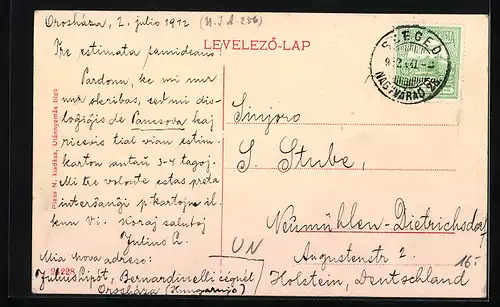 Orosháza, 2. julio 1912 (U.J.A. 256)
Tre estimata samideano!
Pardonu, ke mi nur
nun skribas, sed mi dis-
loĝiĝis de Pancsova kaj
ricevis tial vian estim.
karton antaŭ 3-4 tagoj.
Mi tre volonte estas preta
interŝanĝi p. kartojn il.
kun Vi. Koraj salutoj
Julius L.
Mia nova adreso:
Julius Lipót, Bernardinelli cégnél
Orosháza (Hungarujo)
LEVELEZŐ-LAP
SZEGED
NAGYVÁRAD
Sinjoro
S. Stube,
Neümühlen-Dietrichsdorf
Augustenstr 2.
Holstein, Deutschland
UN
16.-
Pless N. kiadása, Utánnyomás tilos
21228